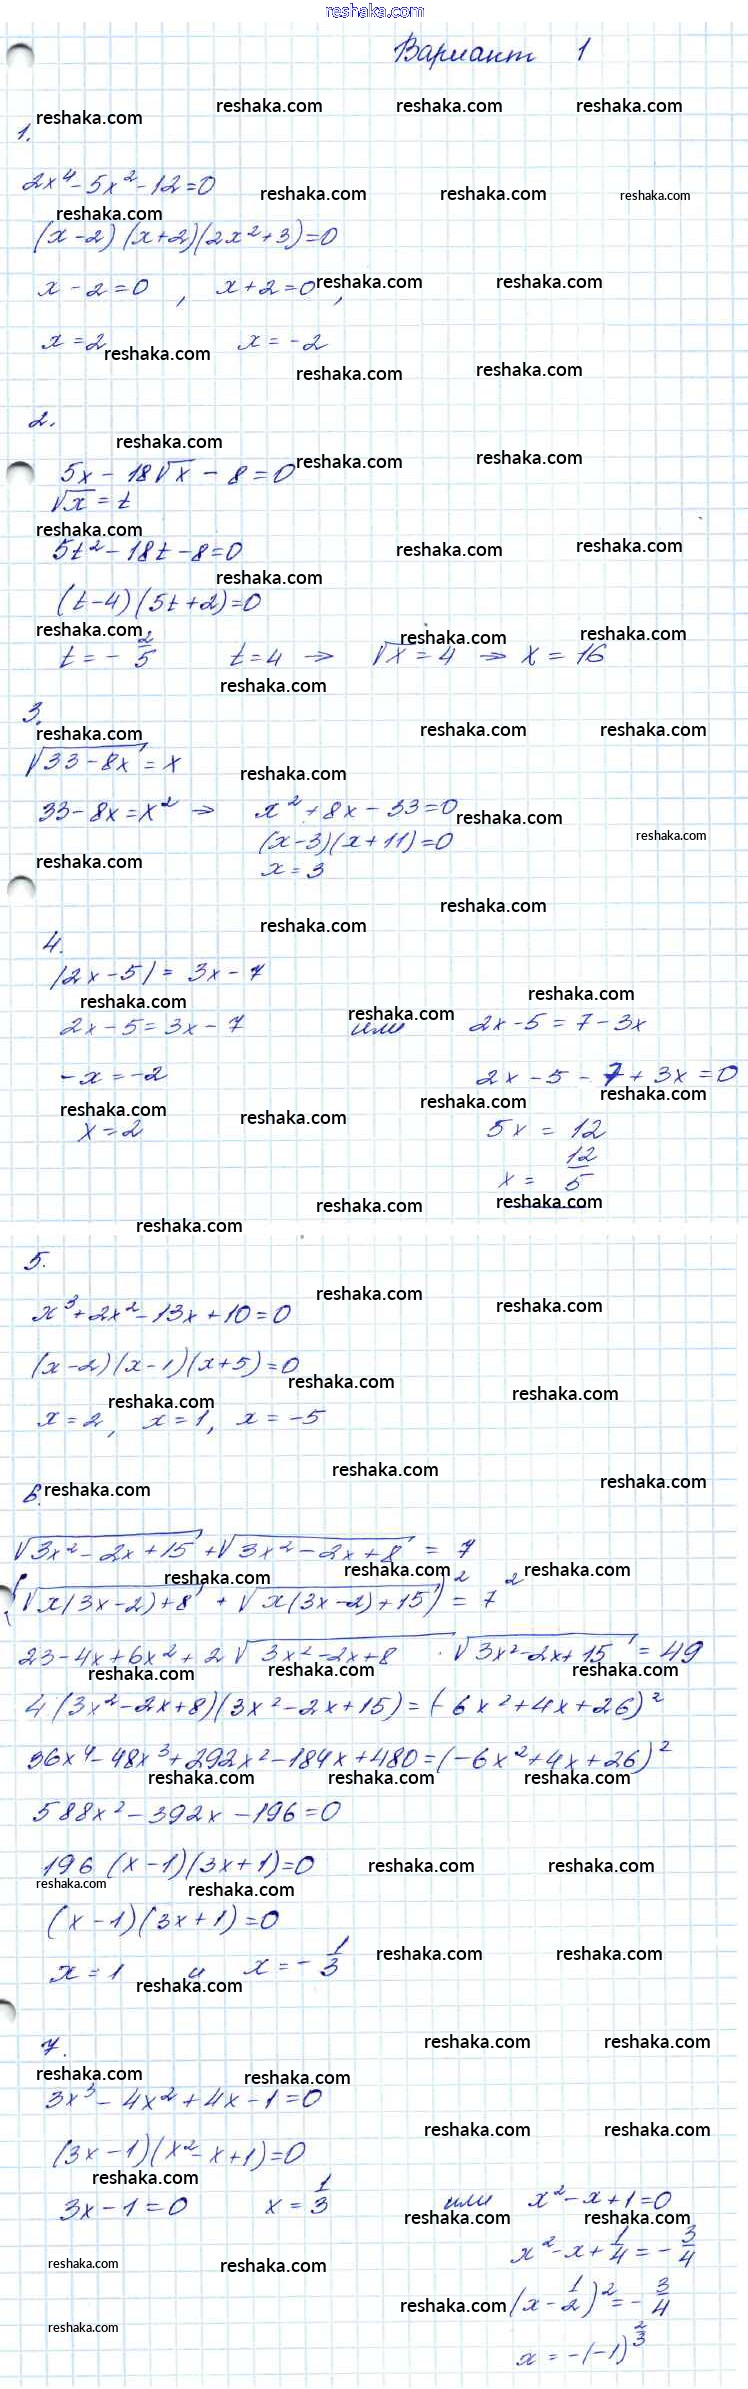 reshaka.com
Вариант 1
reshaka.com reshaka.com reshaka.com reshaka.com
1.
2x⁴ - 5x² - 12 = 0
reshaka.com reshaka.com reshaka.com
reshaka.com
(x - 2)(x + 2)(2x² + 3) = 0
x - 2 = 0 , x + 2 = 0 , reshaka.com reshaka.com
x = 2 x = -2
reshaka.com reshaka.com reshaka.com
2.
reshaka.com reshaka.com reshaka.com
5x - 18√x - 8 = 0
√x = t
reshaka.com reshaka.com reshaka.com
5t² - 18t - 8 = 0
reshaka.com
(t - 4)(5t + 2) = 0
reshaka.com reshaka.com reshaka.com
t = - 2/5 t = 4 ⇒ √x = 4 ⇒ x = 16
reshaka.com
3.
reshaka.com reshaka.com reshaka.com
√33 - 8x = x
reshaka.com
33 - 8x = x² ⇒ x² + 8x - 33 = 0
reshaka.com reshaka.com
(x - 3)(x + 11) = 0
reshaka.com
x = 3
reshaka.com reshaka.com
4.
|2x - 5| = 3x - 7
reshaka.com reshaka.com reshaka.com
2x - 5 = 3x - 7 или 2x - 5 = 7 - 3x
-x = -2 2x - 5 - 7 + 3x = 0
reshaka.com reshaka.com reshaka.com reshaka.com
x = 2 5x = 12
x = 12/5
reshaka.com reshaka.com reshaka.com
5.
reshaka.com reshaka.com
x³ + 2x² - 13x + 10 = 0
(x - 2)(x - 1)(x + 5) = 0
reshaka.com reshaka.com reshaka.com
x = 2 , x = 1 , x = -5
reshaka.com reshaka.com
6. reshaka.com
√3x² - 2x + 15 + √3x² - 2x + 8 = 7
reshaka.com reshaka.com reshaka.com
(√x(3x - 2) + 8 + √x(3x - 2) + 15)² = 7²
23 - 4x + 6x² + 2√3x² - 2x + 8 · √3x² - 2x + 15 = 49
reshaka.com reshaka.com reshaka.com
4(3x² - 2x + 8)(3x² - 2x + 15) = (-6x² + 4x + 26)²
36x⁴ - 48x³ + 292x² - 184x + 480 = (-6x² + 4x + 26)²
reshaka.com reshaka.com reshaka.com
588x² - 392x - 196 = 0
196 (x - 1)(3x + 1) = 0 reshaka.com reshaka.com
reshaka.com reshaka.com
(x - 1)(3x + 1) = 0
x = 1 и x = - 1/3 reshaka.com reshaka.com
reshaka.com
7. reshaka.com reshaka.com
reshaka.com reshaka.com
3x³ - 4x² + 4x - 1 = 0
reshaka.com reshaka.com
(3x - 1)(x² - x + 1) = 0
reshaka.com
3x - 1 = 0 x = 1/3 или x² - x + 1 = 0
reshaka.com reshaka.com
x² - x + 1/4 = - 3/4
reshaka.com reshaka.com
reshaka.com (x - 1/2)² = - 3/4
reshaka.com
x = -(-1)^2/3